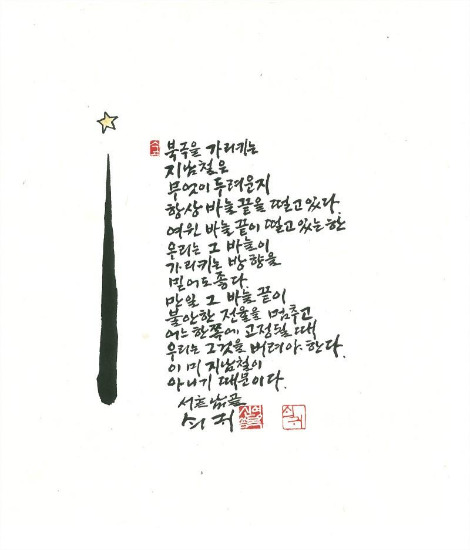 북극을 가리키는
지남철은
무엇이 두려운지
항상 바늘 끝을 떨고 있다.
여윈 바늘 끝이 떨고 있는 한
우리는 그 바늘이
가리키는 방향을
믿어도 좋다.
만일 그 바늘 끝이
불안한 전율을 멈추고
어느 한쪽에 고정될 때
우리는 그것을 버려야 한다.
이미 지남철이
아니기 때문이다.
쇠귀